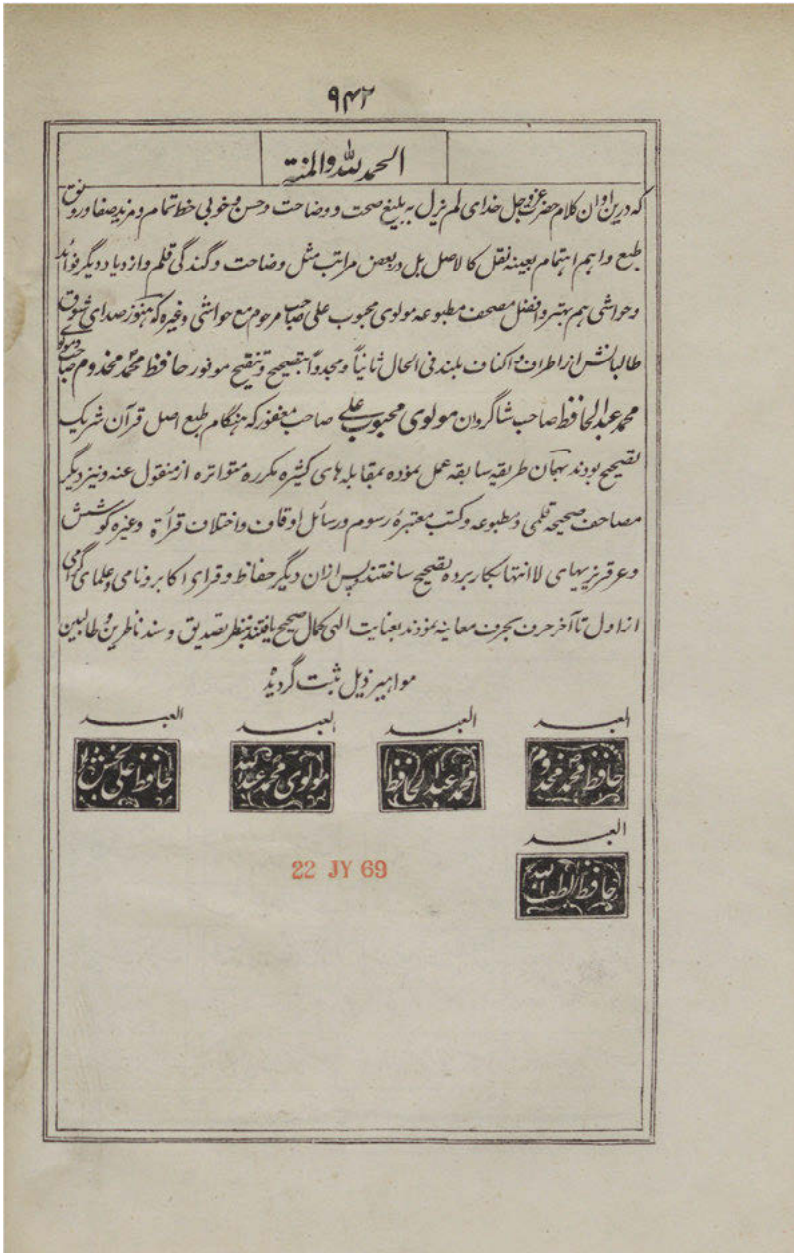 ۹۴۲
الحمد لله والمنة
که درین اوان کلام حضرت عزوجل خدای لم یزل به بلیغ صحت و وضاحت و حسن و خوبی خط تمام و مزید صفا و رونق
طبع و اهم اهتمام بعینه نقل کالاصل بل در بعض مراتب مثل وضاحت و گندگی قلم و ازدیاد دیگر فوائد
و حواشی هم بهتر و افضل مصحف مطبوعه مولوی محبوب علی صاحب مرحوم مع حواشی وغیره که هنوز صدای شوق
طالبانش از اطراف و اکناف بلند فی الحال ثانیاً و مجدداً بتصحیح و تنقیح موفور حافظ محمد مخدوم صاحب
محمد عبد الحافظ صاحب شاگردان مولوی محبوب علی صاحب مغفور که هنگام طبع اصل قرآن شریک
تصحیح بودند بهمان طریقه سابقه عمل نموده بمقابله های کثیره مکرره متواتره از منقول عنه و نیز دیگر
مصاحف صحیحه قلمی و مطبوعه و کتب معتبرۀ رسوم و رسائل اوقاف و اختلاف قرأة وغیره کوشش
و عرقریزیهای لاانتها بکار برده تصحیح ساختند پس ازان دیگر حفاظ و قرای اکابر و نامی و علمای گرامی
از اول تا آخر حرف بحرف معاینه نمودند بعنایت الهی بکمال صحیح یافتند بنظر تصدیق و سند ناظرین و طالبین
مواهیر ذیل ثبت گردید
العبد العبد العبد العبد
حافظ محمد مخدوم محمد عبد الحافظ مولوی محمد عبد الله حافظ علی بخش
العبد
حافظ لطف الله
22 JY 69